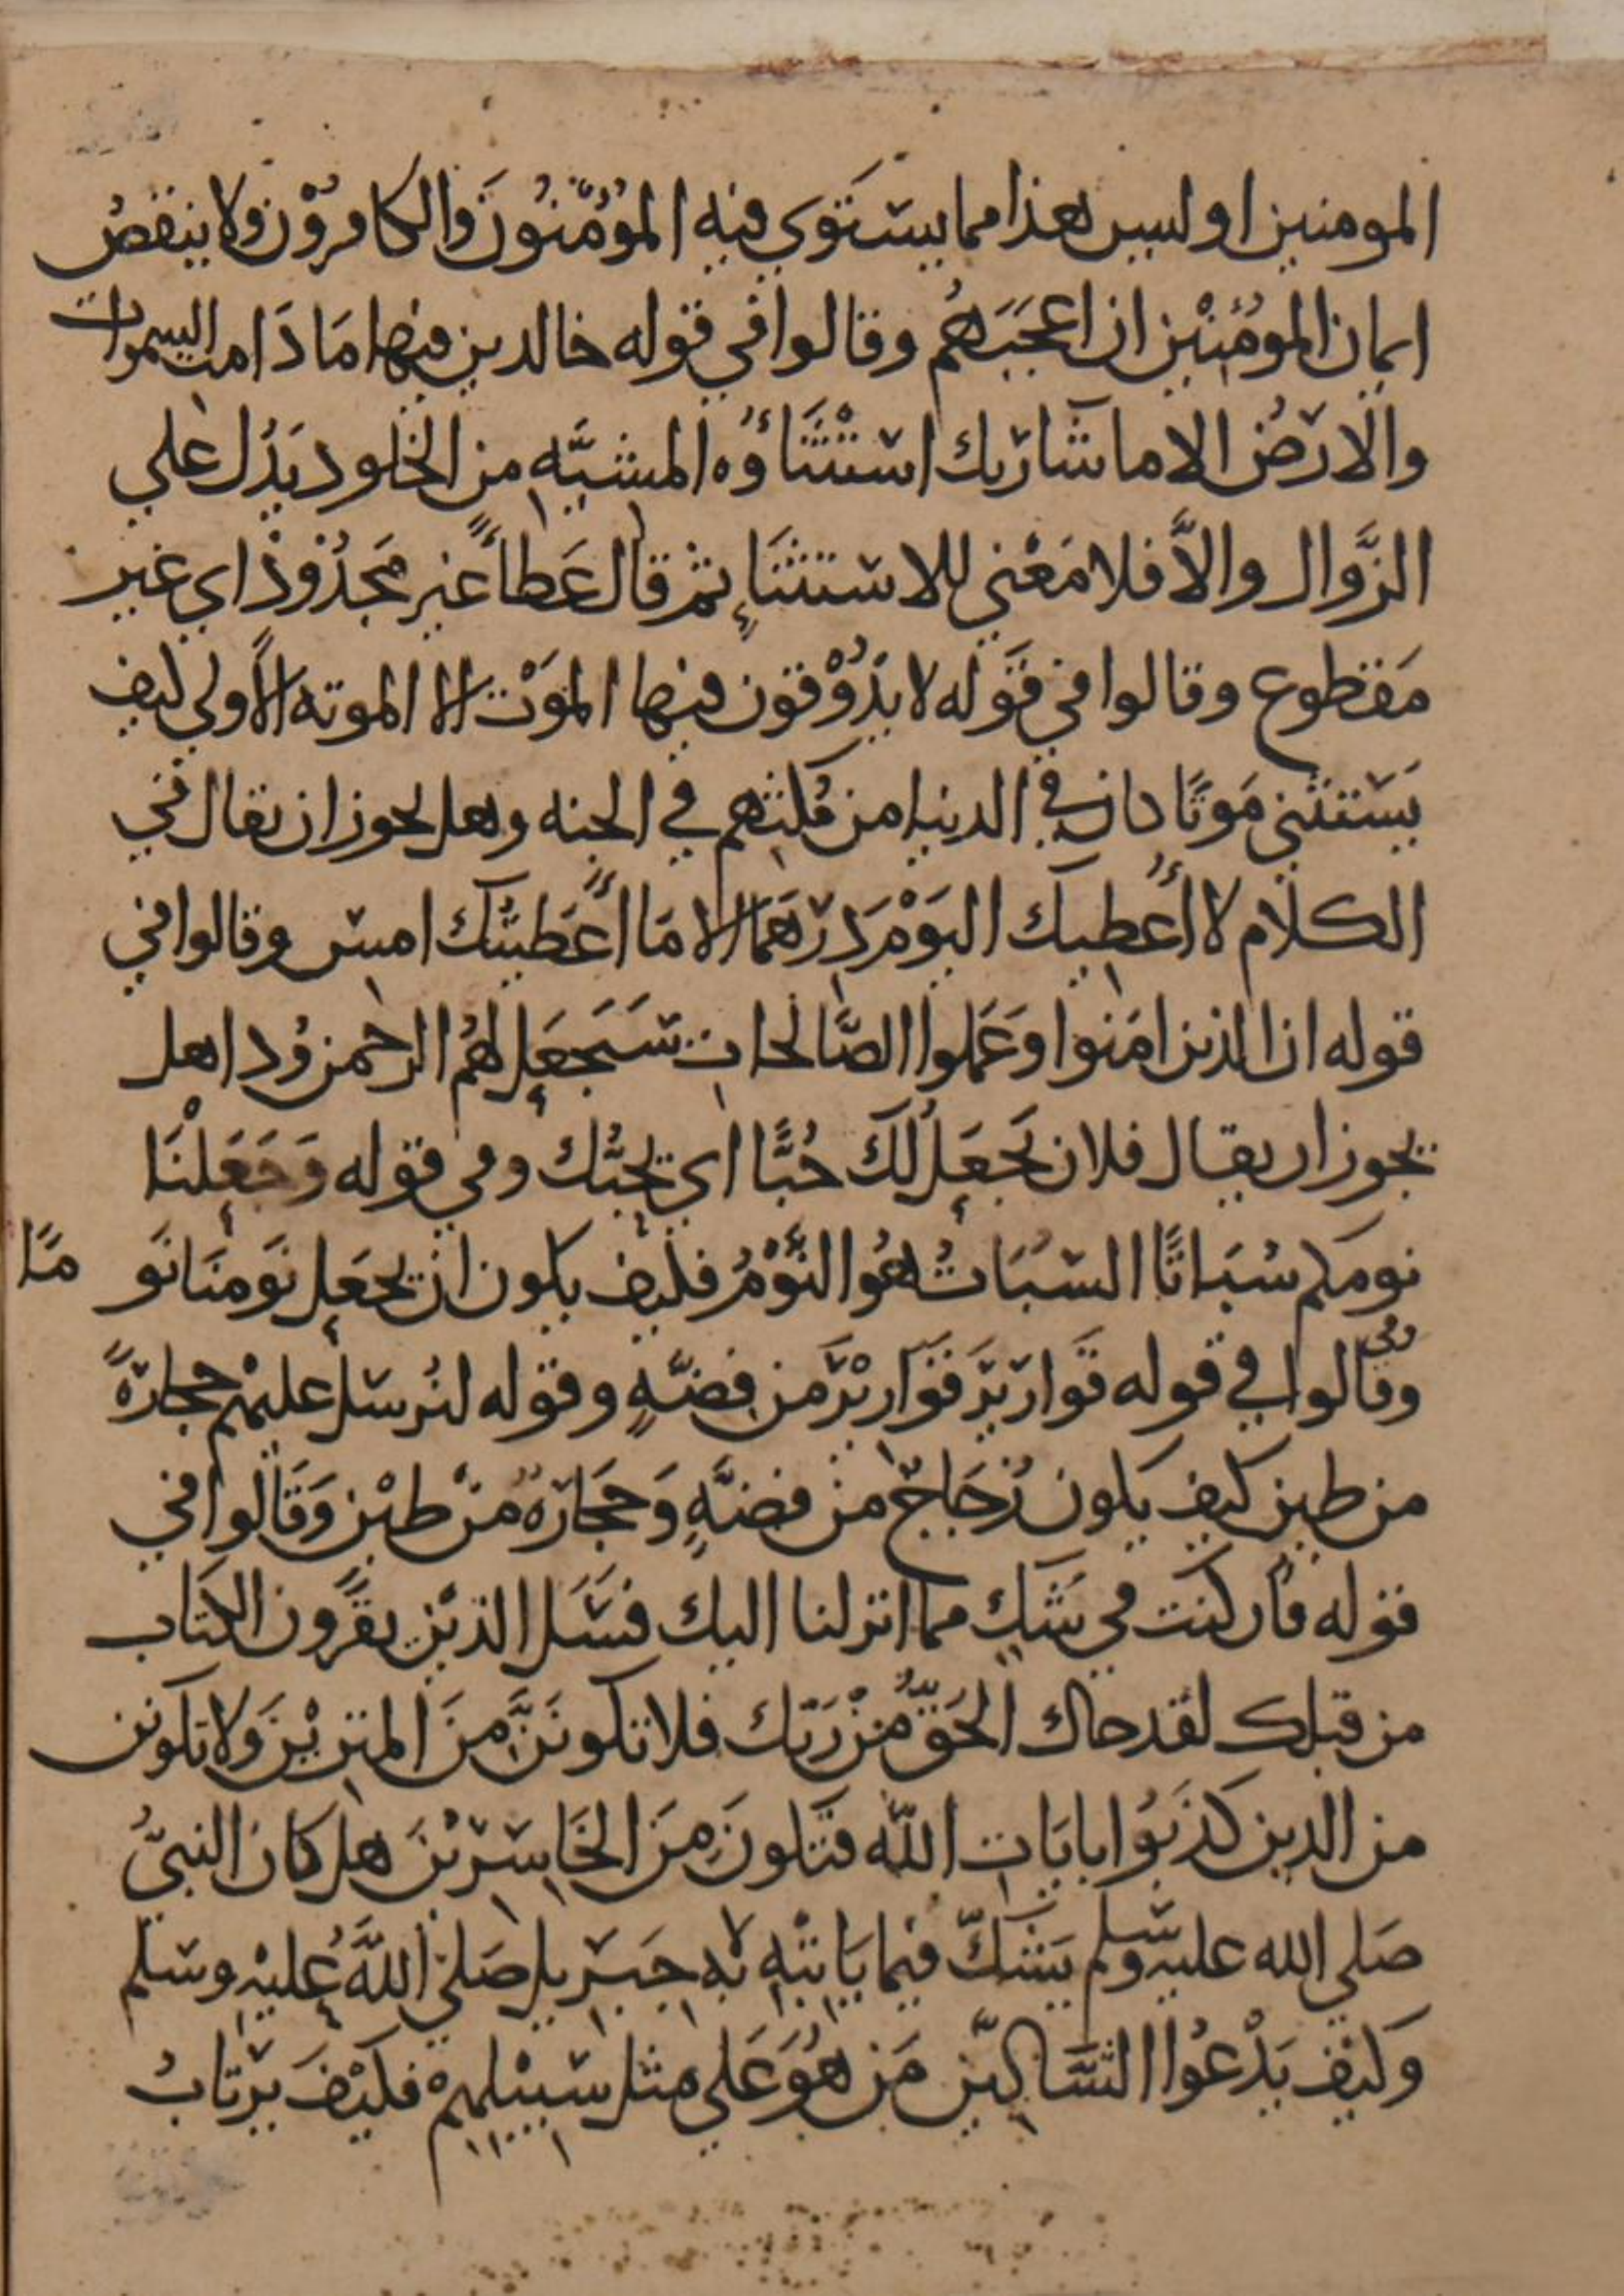 المومنين او ليس هذا مما يستَوي فيه المُؤمنُونَ والكافرُوْن ولا ينقصُ
ايمان المومنيْن ان اعجَبَهُم وقالوا في قوله خالدين فيها مَا دَامت السموات
والارضُ الا ما شا ربك استْثنَاؤُه المشيَّهِ من الخلود يَدُل علي
الزَّوال والاَّ فلا مَعْني للاستثنَاءِ ثم قال عَطاءً غير مَجذُوْذ اي غير
مَقطوع وقالوا في قَوله لا يذُوْقون فيها المَوْت الا الموته الاُولي كيف
يَستثني مَوتًا كان في الدنيا من مُكثهم في الجنه وهل يجوز ان يقال في
الكلام لا اُعطيك اليَوْم دِرْهَمًا الا مَا اَعطيتُك امس وقالوا في
قوله ان الذين امَنوا وَعَملوا الصَّالحات سَيَجعَل لهُم الرحمن وُدا هل
يجوز ان يقال فلان يَجعَلُ لَكَ حُبًّا اي يحِبُّك وفي قوله وَجَعَلْنَا
نومكم سُبَاتًا السُبَاتُ هُوا النَّوْمُ فكيف يكون ان يجعَل نَومنَا نَو مًا
وقالوا في قوله قَوارَيرَ قَوَاريْرَ من فِضَّهٍ وقوله لنُرسل عليهْم حجارةً
من طين كيف يكون زُجَاجٌ من فضَّهٍ وَحجَارَهٌ منْ طيْن وَقَالوا في
قوله فان كنت في شَكٍ مما انزلنا اليك فسَئَل الذيْن يقرَون الكتاب
من قبلك لقد جاك الحَقُّ منْ رَبّك فلا تكونَنَّ منَ الممتريْنَ وَلا تكونن
من الدين كذبَوُا بايَات الله فتكونَ منَ الخَاسريْنَ هل كان النبيُّ
صَلي الله عليه وسلم يَشكّ فيما يَاتيْهِ به جبَريل صَلي اللَّهُ عليْه وسلم
وَكيْف يَدْعُوا الشَاكيّن مَن هُوَ عَلي مثل سَبيْلهمْ فكيْفَ يرْتابُ